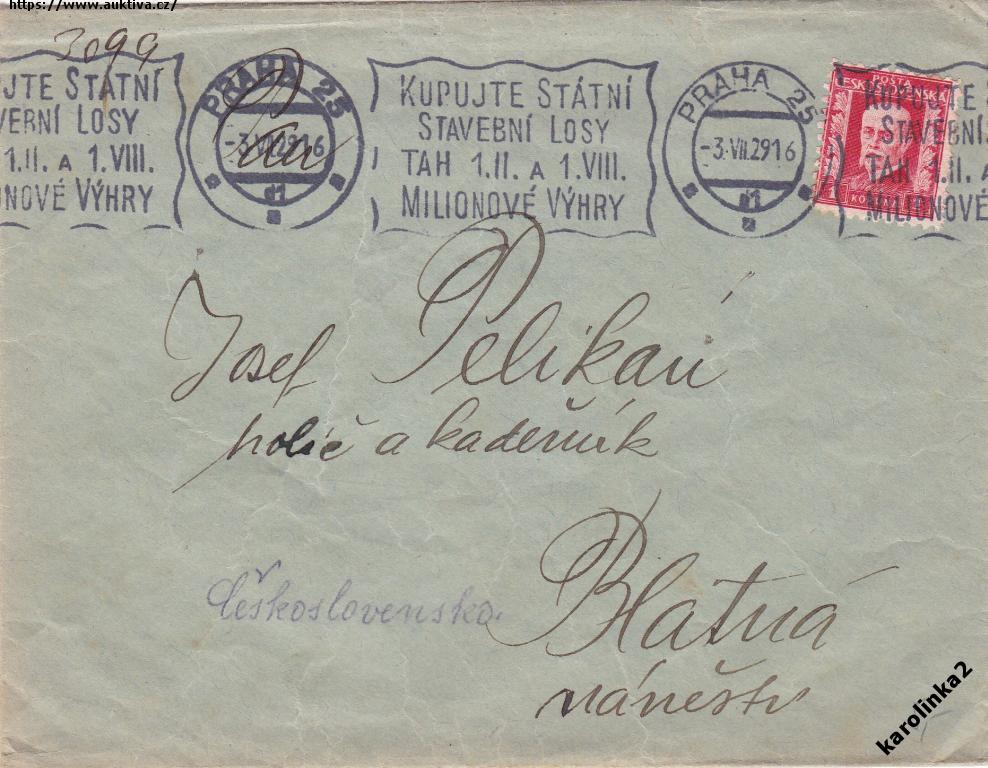 https://www.auktiva.cz/
3099
JTE STÁTNÍ
VEBNÍ LOSY
1.II. A 1.VIII.
ONOVÉ VÝHRY
PRAHA 25
-3.VII.29 16
d1
Pan
KUPUJTE STÁTNÍ
STAVEBNÍ LOSY
TAH 1.II. A 1.VIII.
MILIONOVÉ VÝHRY
PRAHA 25
-3.VII.29 16
d1
POŠTA
ČESKOSLOVENSKÁ
KUPUJTE
STAVEBNÍ
TAH 1.II. A
MILIONOVÉ
Josef Pelikán
holič a kadeřník
Blatná
náměstí
Československo.
karolinka2